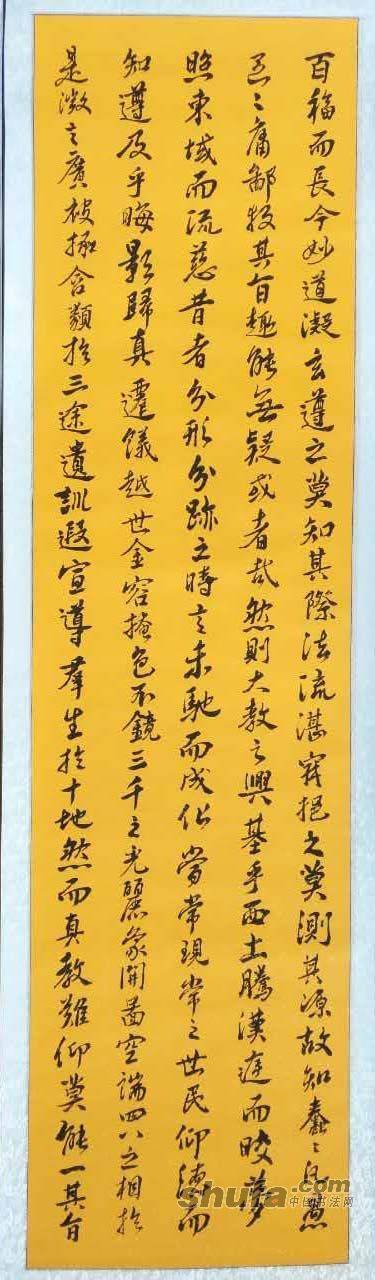 百福而長今妙道凝玄遵之莫知其際法流湛寂挹之莫測其源故知蠢々凡愚
區々庸鄙投其旨趣能無疑或者哉然則大教之興基乎西土騰漢庭而皎夢
照東域而流慈昔者分形分跡之時言未馳而成化當常現常之世民仰德而
知遵及乎晦影歸真遷儀越世金容掩色不鏡三千之光麗象開圖空端四八之相於
是微言廣被拯含類於三途遺訓遐宣導羣生於十地然而真教難仰莫能一其旨
shufa.com
中国书法网